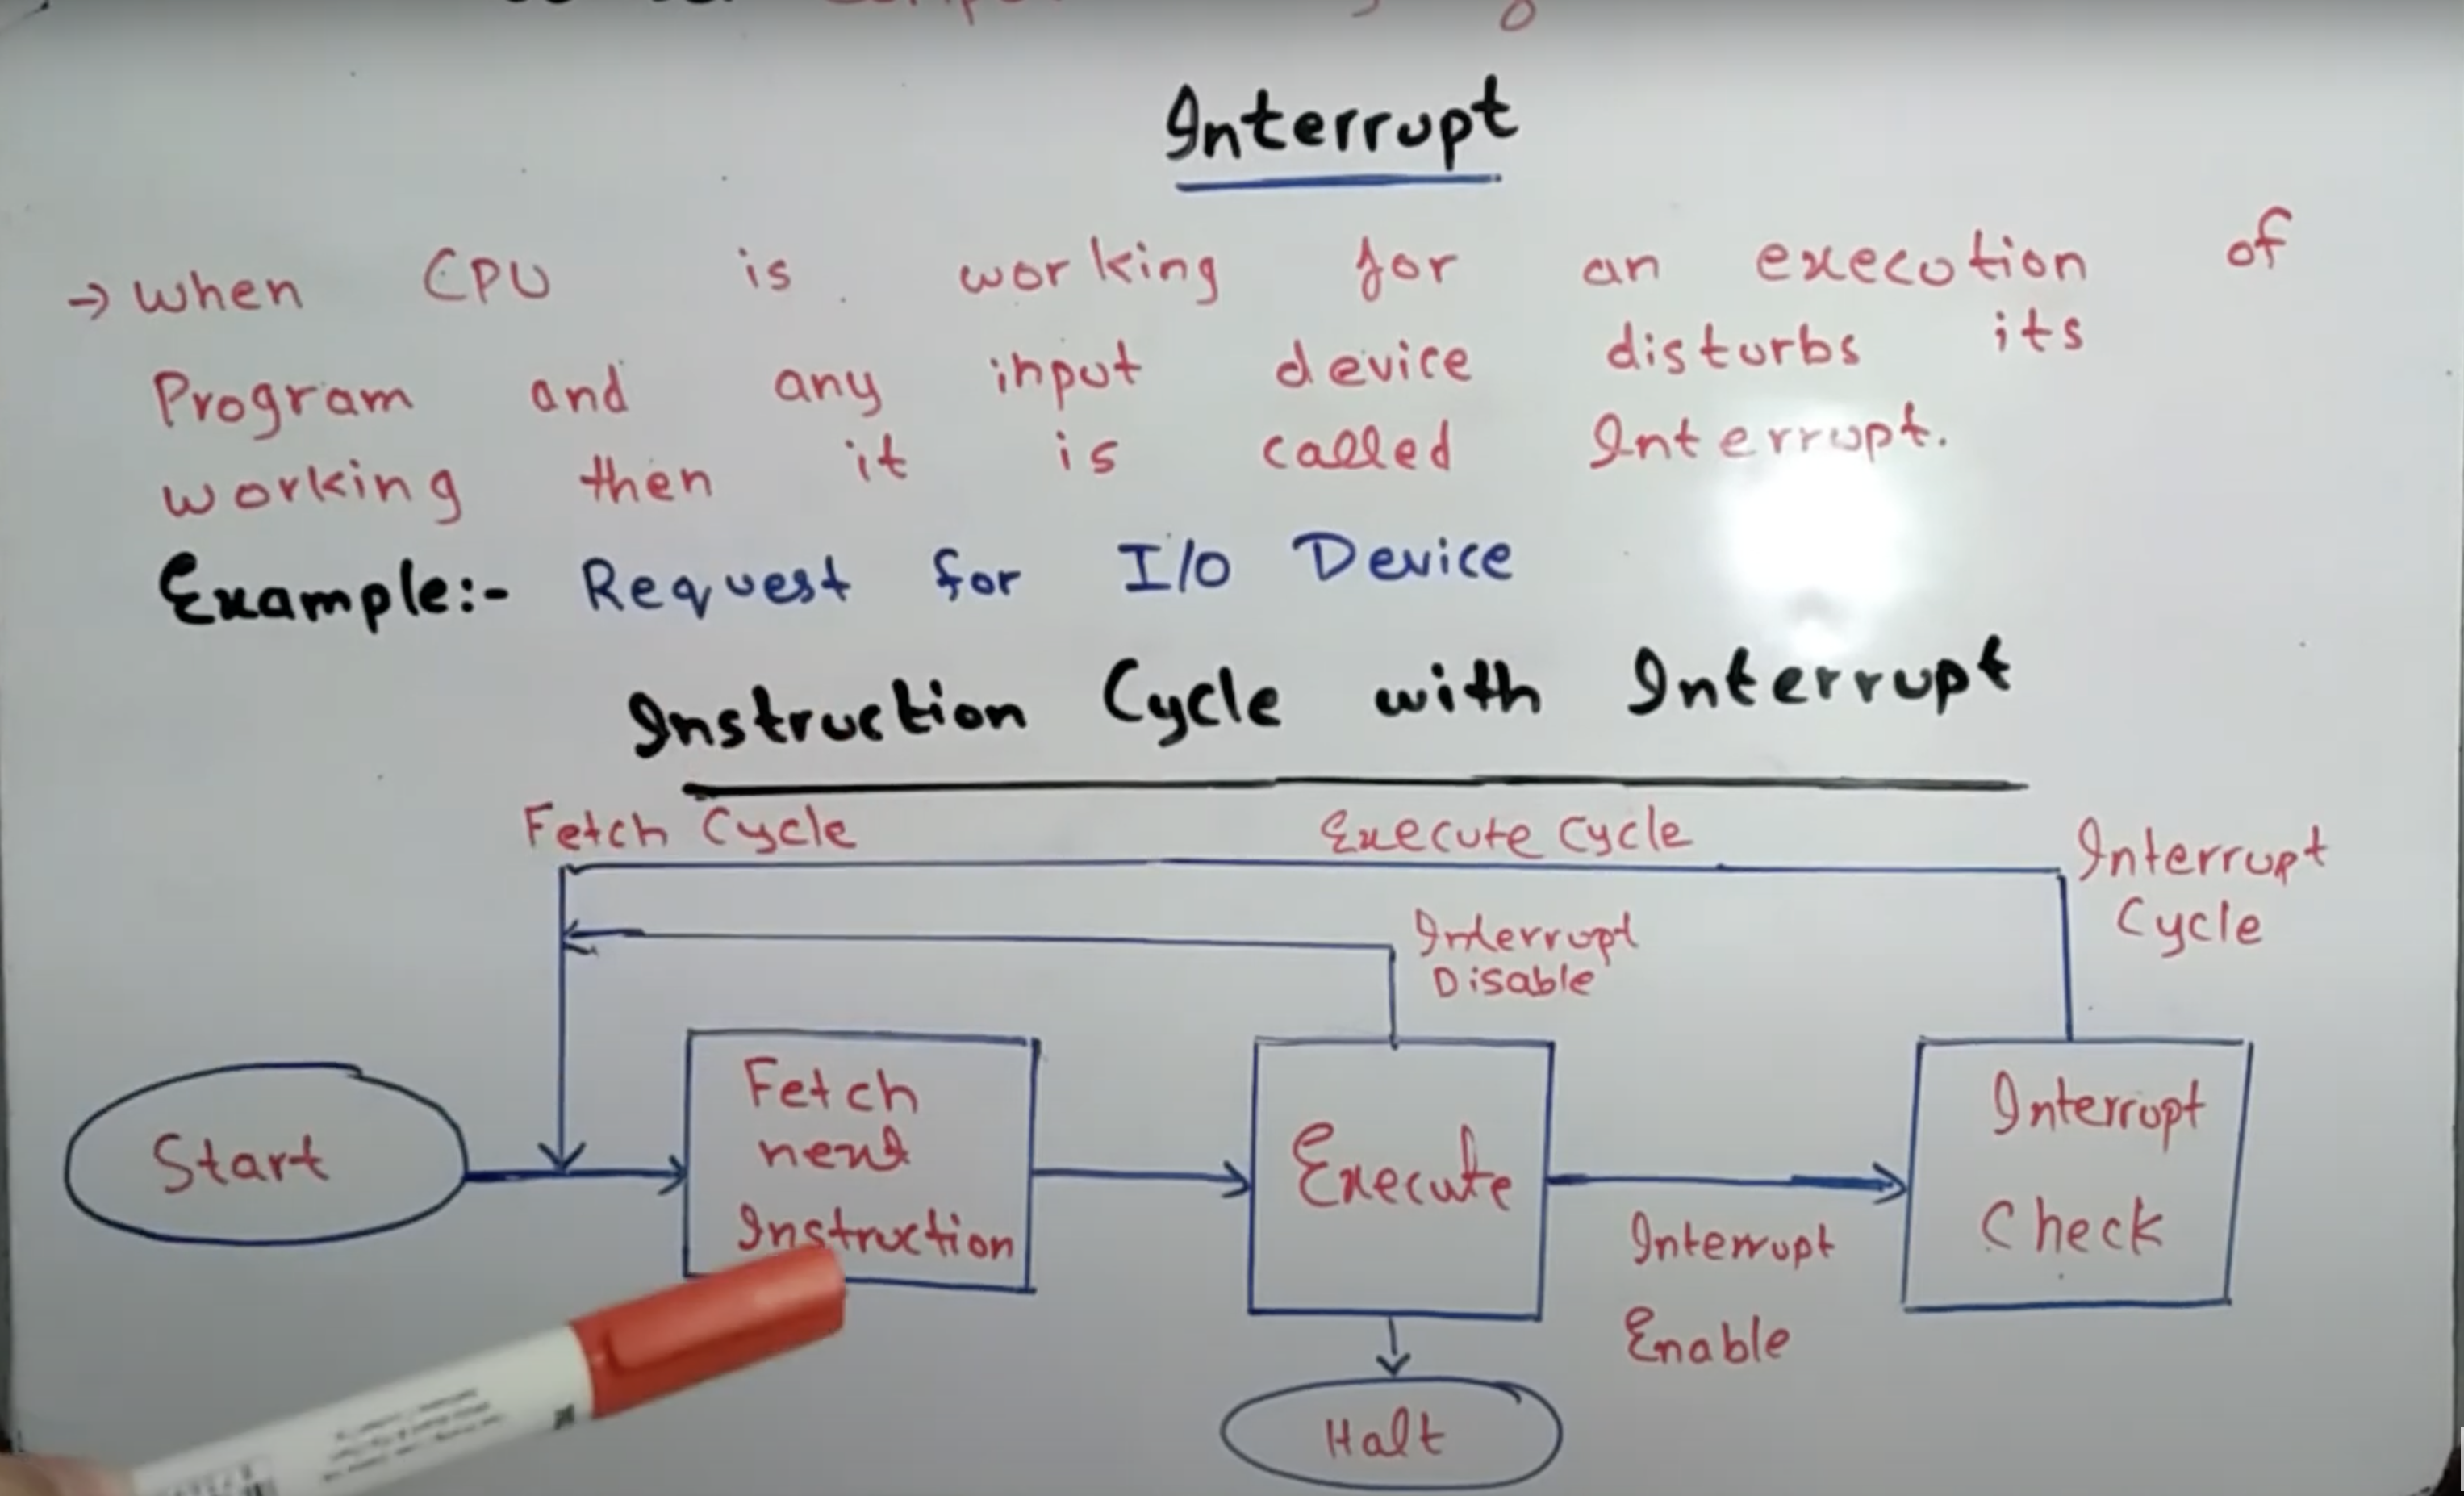 Interrupt
→ When CPU is working for an execution of
Program and any input device disturbs its
working then it is called Interrupt.
Example:- Request for I/O Device
Instruction Cycle with Interrupt
Fetch Cycle
Execute Cycle
Interrupt
Cycle
Interrupt
Disable
Start
Fetch
next
Instruction
Execute
Interrupt
Enable
Interrupt
Check
Halt